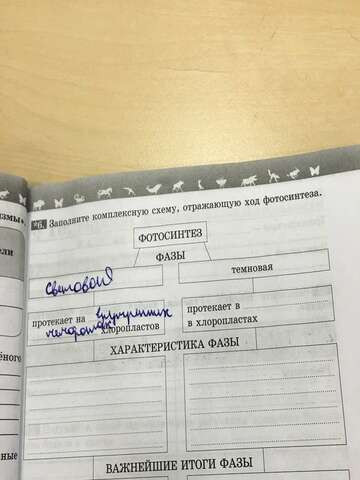 измы»
ели
ёного
ные
26. Заполните комплексную схему, отражающую ход фотосинтеза.
ФОТОСИНТЕЗ
ФАЗЫ
световой
темновая
протекает на внутренних
мембранах хлоропластов
протекает в
в хлоропластах
ХАРАКТЕРИСТИКА ФАЗЫ
ВАЖНЕЙШИЕ ИТОГИ ФАЗЫ